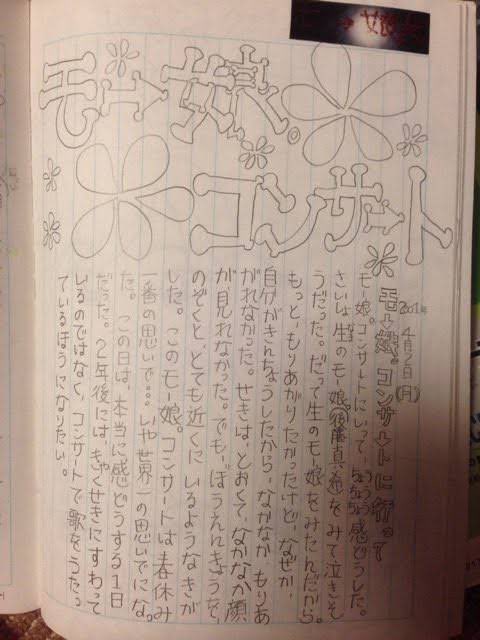 モー娘。
コンサート
2001年
4月2日(月)
モー娘。コンサートに行って
モー娘。コンサートにいって、ちょうちょう感どうした。
さいしょ生のモー娘。(後藤真希)をみて泣きそ
うだった。だって生のモー娘をみたんだから。
もっと、もりあがりたかったけど、なぜか、
自分がきんちょうしたから、なかなか、もりあ
がれなかった。せきは、とおくて、なかなか顔
が見れなかった。でも、ぼうえんきょうを、
のぞくと、とても近くに、いるような、きが
した。このモー娘。コンサートは春休み
一番の思いで…。いや世界一の思いでになっ
た。この日は、本当に感どうする1日
だった。2年後には、きゃくせきにすわって
いるのではなく、コンサートで歌をうたっ
ているほうになりたい。